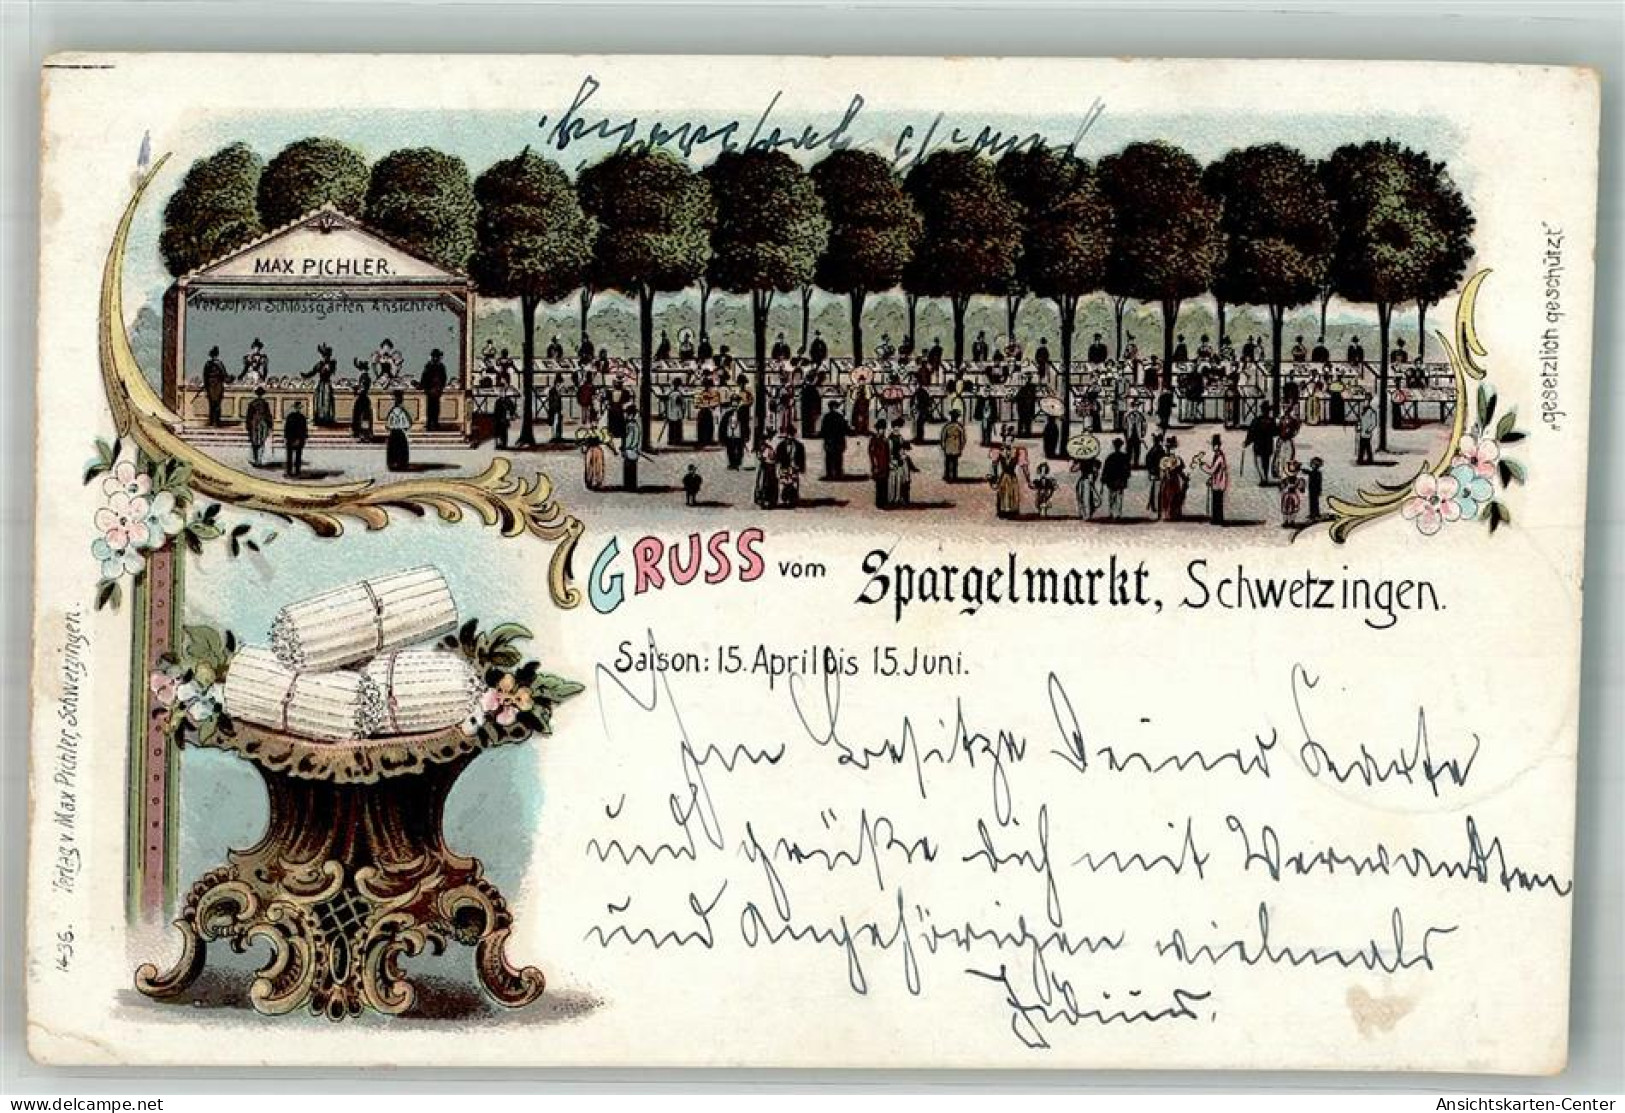 MAX PICHLER.
Verkauf von Schlossgarten Ansichten
GRUSS vom Spargelmarkt, Schwetzingen.
Saison: 15. April bis 15. Juni.
Im Besitze Deiner Karte
und grüße dich mit Verwandten
und Angehörigen vielmals
„gesetzlich geschützt“
1436. Verlag v. Max Pichler, Schwetzingen.
Ansichtskarten-Center
delcampe.net